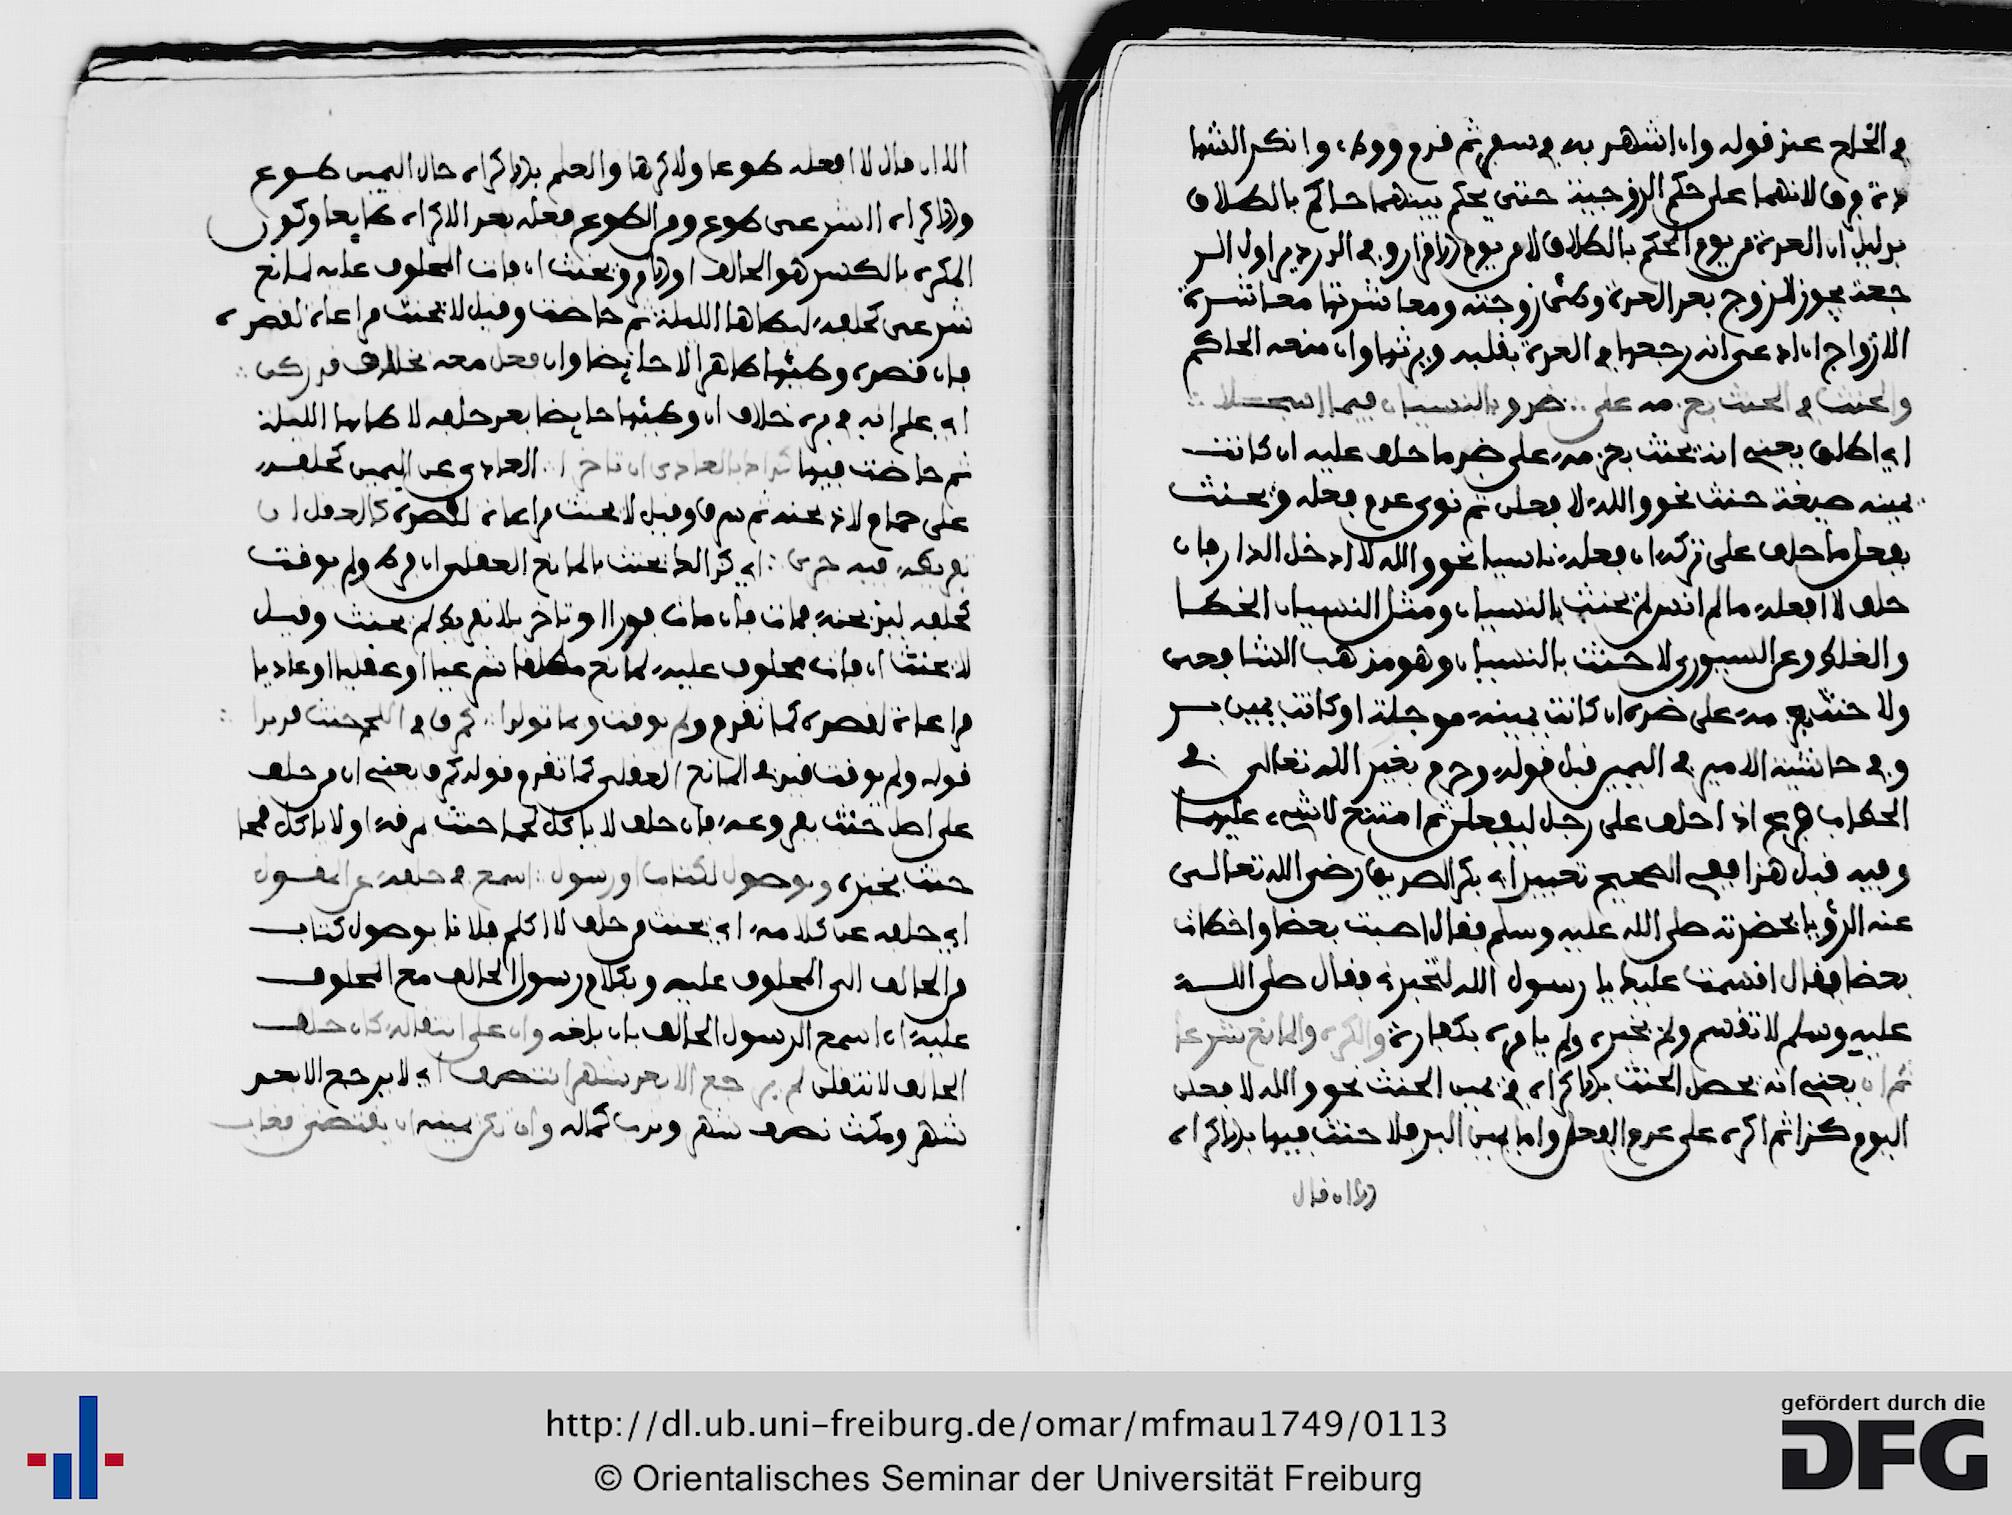 في الخلع عند قوله وان اشهد به في سفر ثم قدم ووطء وانكر الشها
دة فرق لانهما على حكم الزوجية حتى يحكم بينهما حاكم بالطلاق
بدليل ان العدة من يوم الحكم بالطلاق لا من يوم
جعة يجوز للزوج بعد العدة وطئ زوجته ومعاشرتها معاشرة
الازواج ان ادعى انه رجعها في العدة بقلبه ويرثها وان منعه الحاكم
والحنث في الحنث بعزمه على ضد وبالنسيان فيما
اي اطلق يعني انه يحنث بعزمه على ضد ما حلف عليه ان كانت
يمينه صيغة حنث نحو والله لافعلن ثم نوى عدم فعله ويحنث
بفعل ما حلف على تركه ان فعله ناسيا نحو والله لا ادخل الدار فان
حلف لا افعله ما لم انس لم يحنث بالنسيان ومثل النسيان الخطا
والغلط وعن السيوري لا حنث بالنسيان وهو مذهب الشافعي
ولا حنث بعزمه على ضده ان كانت يمينه موجلة او كانت يمين بر
وفي حاشية الامير في اليمين قبل قوله وحرم بغير الله تعالى في
الحطاب فرع اذا حلف على رجل ليفعلن ثم امتنع لا شيء عليهما
وفيه قبل هذا ففي الصحيح تعبير ابي بكر الصديق رضي الله تعالى
عنه الرؤيا بحضرته صلى الله عليه وسلم فقال اصبت بعضا واخطات
بعضا فقال اقسمت عليك يا رسول الله لتخبرني فقال صلى الله
عليه وسلم لا تقسم ولم يخبره ولم يامره بكفارة والكره والمانع شرعا
يعني انه يحصل الحنث بالاكراه في يمين الحنث نحو والله لافعلن
اليوم كذا ثم اكره على عدم الفعل واما يمين البر فلا حنث فيها بالاكراه
الا ان قال
الا ان قال لا افعله طوعا ولا كرها والعلم بالاكراه حال اليمين طوع
والاكراه الشرعي طوع ومن الطوع فعله بعد الاكراه طايعا وكون
المكره بالكسر هو الحالف ويحنث ان فات المحلوف عليه لمانع
شرعي كحلفه ليطاها الليلة ثم حاضت وقيل لا يحنث مراعاة لقصده
فان قصده وطئها طاهرا لا حايضا وان فعل معه
اي علم انه في بره خلاف ان وطئها حايضا بعد حلفه لاطانها الليلة
ثم حاضت فيها العادي عن اليمين كحلفه
على حمام لاذبحنه ثم سرق وقيل لا يحنث مراعاة لقصده كالعقل ان
اي كذا يحنث بالمانع العقلي ان فرط ولم يوقت
كحلفه ليذبحنه فمات فان مات فورا او تاخر بلا تفريط لم يحنث وقيل
لا يحنث ان فات محلوف عليه لمانع مطلقا شرعيا او عقليا او عاديا
مراعاة لقصده كما تقدم ولم يوقت
قوله ولم يوقت قيد في المانع العقلي كما تقدم وقوله يعني ان من حلف
على اصل حنث بفروعه فان حلف لا ياكل لحما حنث بمرقه او لا ياكل قمحا
حنث بخبزه وبوصول لكتاب او رسول اسمع في حلفه
اي حلفه عن كلامه اي يحنث من حلف لا اكلم فلانا بوصول كتاب
من الحالف الى المحلوف عليه وبكلام رسول الحالف مع المحلوف
عليه ان اسمع الرسول الحالف بان بلغه وان على انتقاله كان حلف
الحالف لانتقلن لم يرجع الا بعد شهر اي لا يرجع الا بعد
شهر ومكث نصف شهر وندب كماله وان تكن يمينه ان
http://dl.ub.uni-freiburg.de/omar/mfmau1749/0113
© Orientalisches Seminar der Universität Freiburg
gefördert durch die
DFG